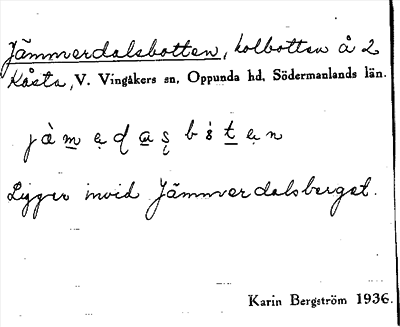 Jämmerdalsbotten, kolbotten å 2
Kåsta, V. Vingåkers sn, Oppunda hd, Södermanlands län.
Ligger invid Jämmerdalsberget.
Karin Bergström 1936.